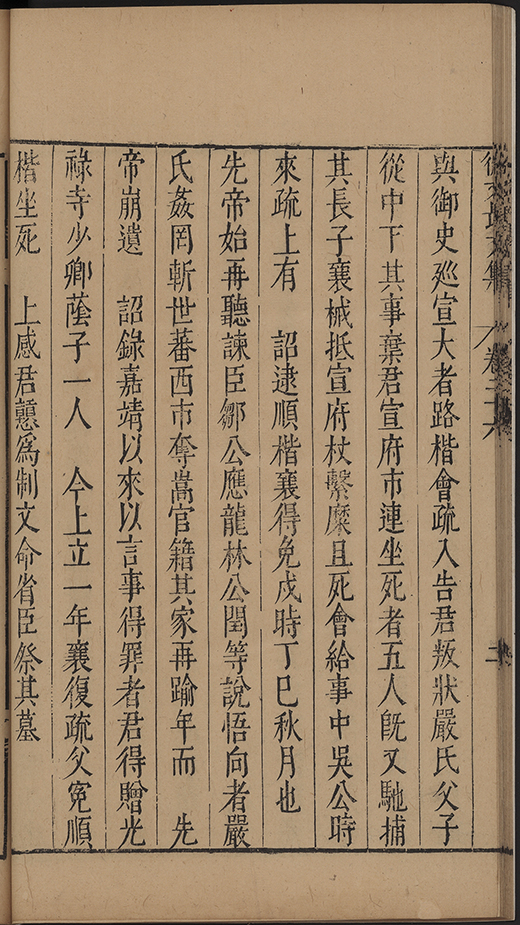 卷二十六
二
與御史廵宣大者路楷會疏入告君叛狀嚴氏父子
從中下其事棄君宣府市連坐死者五人旣又馳捕
其長子襄械抵宣府杖繫糜且死會給事中吳公時
來疏上有 詔逮順楷襄得免戍時丁巳秋月也
先帝始再聽諫臣鄒公應龍林公閏等說悟向者嚴
氏姦罔斬世蕃西市奪嵩官籍其家再踰年而 先
帝崩遺 詔錄嘉靖以來以言事得罪者君得贈光
祿寺少卿蔭子一人 今上立一年襄復疏父寃順
楷坐死 上感君戇爲制文命省臣祭其墓